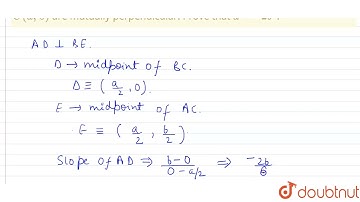 are mutually perpendicular. Prove that
AD ⊥ BE.
D → midpoint of BC.
D ≡ (a/2, 0).
E → midpoint of AC.
E ≡ (a/2, b/2)
Slope of AD ⇒ b-0/0-a/2 ⇒ -2b/
doubtnut